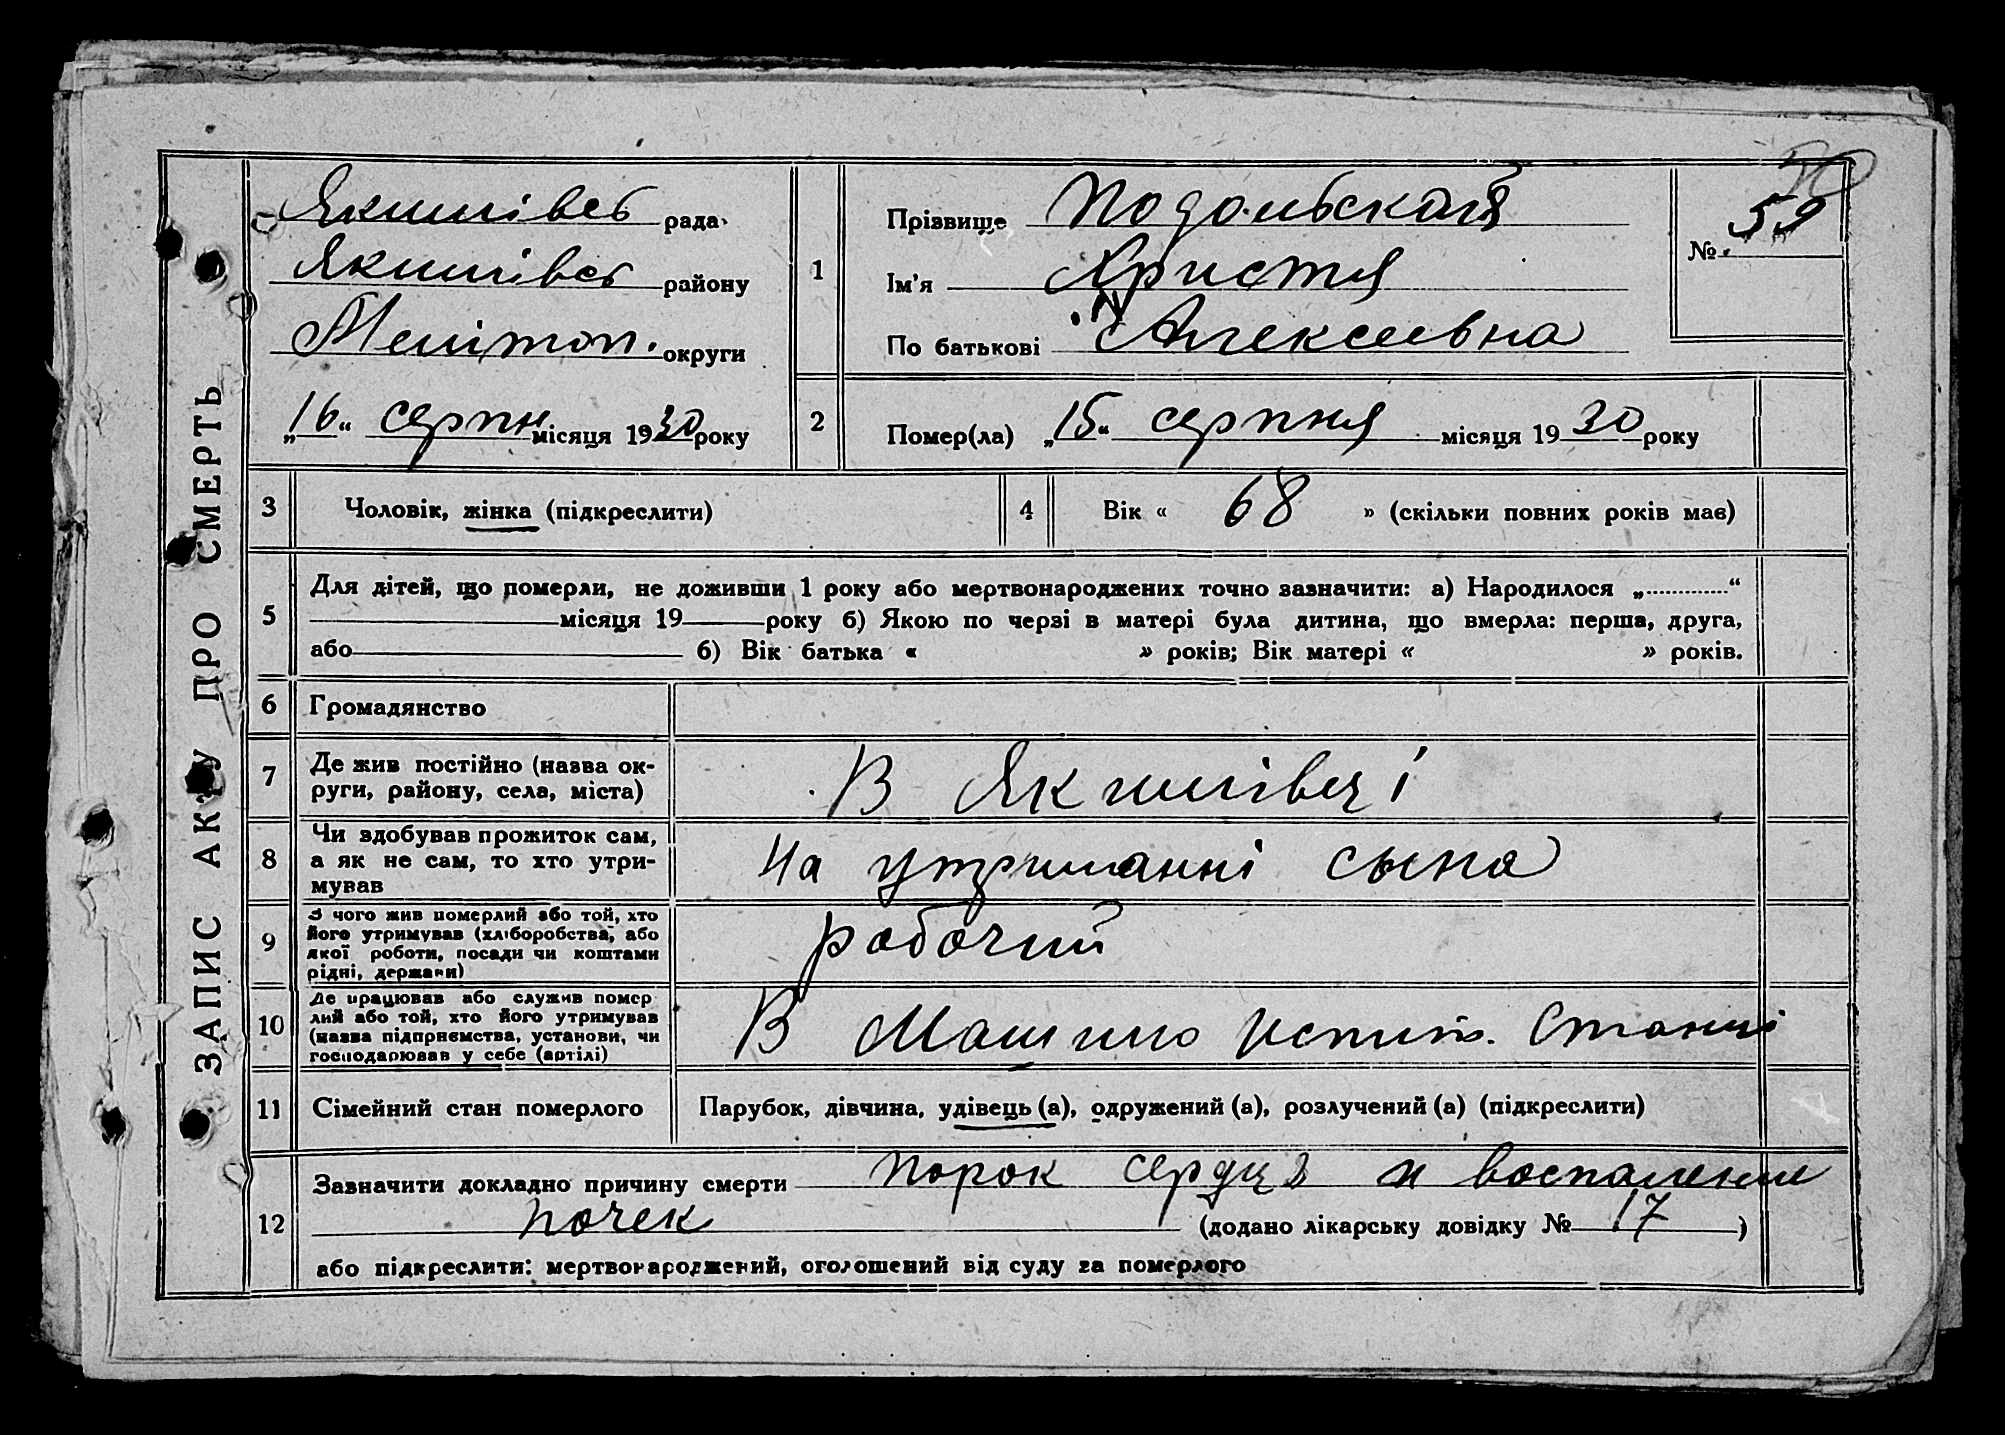 ЗАПИС АКТУ ПРО СМЕРТЬ
Якимівсь рада
Якимівсь району
Меліτоп. округи
„16“ серпн місяця 1930 року
1
Прізвище Подольская
Ім'я Христя
По батькові Алексеевна
№ 59
50
2
Помер(ла) „15“ серпня місяця 1930 року
3 Чоловік, жінка (підкреслити)
4 Вік « 68 » (скільки повних років має)
5
Для дітей, що померли, не доживши 1 року або мертвонароджених точно зазначити: а) Народилося „ “
місяця 19 року б) Якою по черзі в матері була дитина, що вмерла: перша, друга,
або б) Вік батька « » років; Вік матері « » років.
6 Громадянство
7 Де жив постійно (назва ок-
руги, району, села, міста)
В Якимівці
8 Чи здобував прожиток сам,
а як не сам, то хто утри-
мував
На утриманні сына
9 З чого жив померлий або той, хто
його утримував (хліборобства, або
якої роботи, посади чи коштами
рідні, держави)
робочий
10 Де працював або служив помер
лий або той, хто його утримував
(назва підприємства, установи, чи
господарював у себе (артілі)
В Машино Испит. Станці
11 Сімейний стан померлого
Парубок, дівчина, удівець (а), одружений (а), розлучений (а) (підкреслити)
12
Зазначити докладно причину смерти порок сердця и воспаление
почек (додано лікарську довідку № 17 )
або підкреслити: мертвонароджений, оголошений від суду за померлого